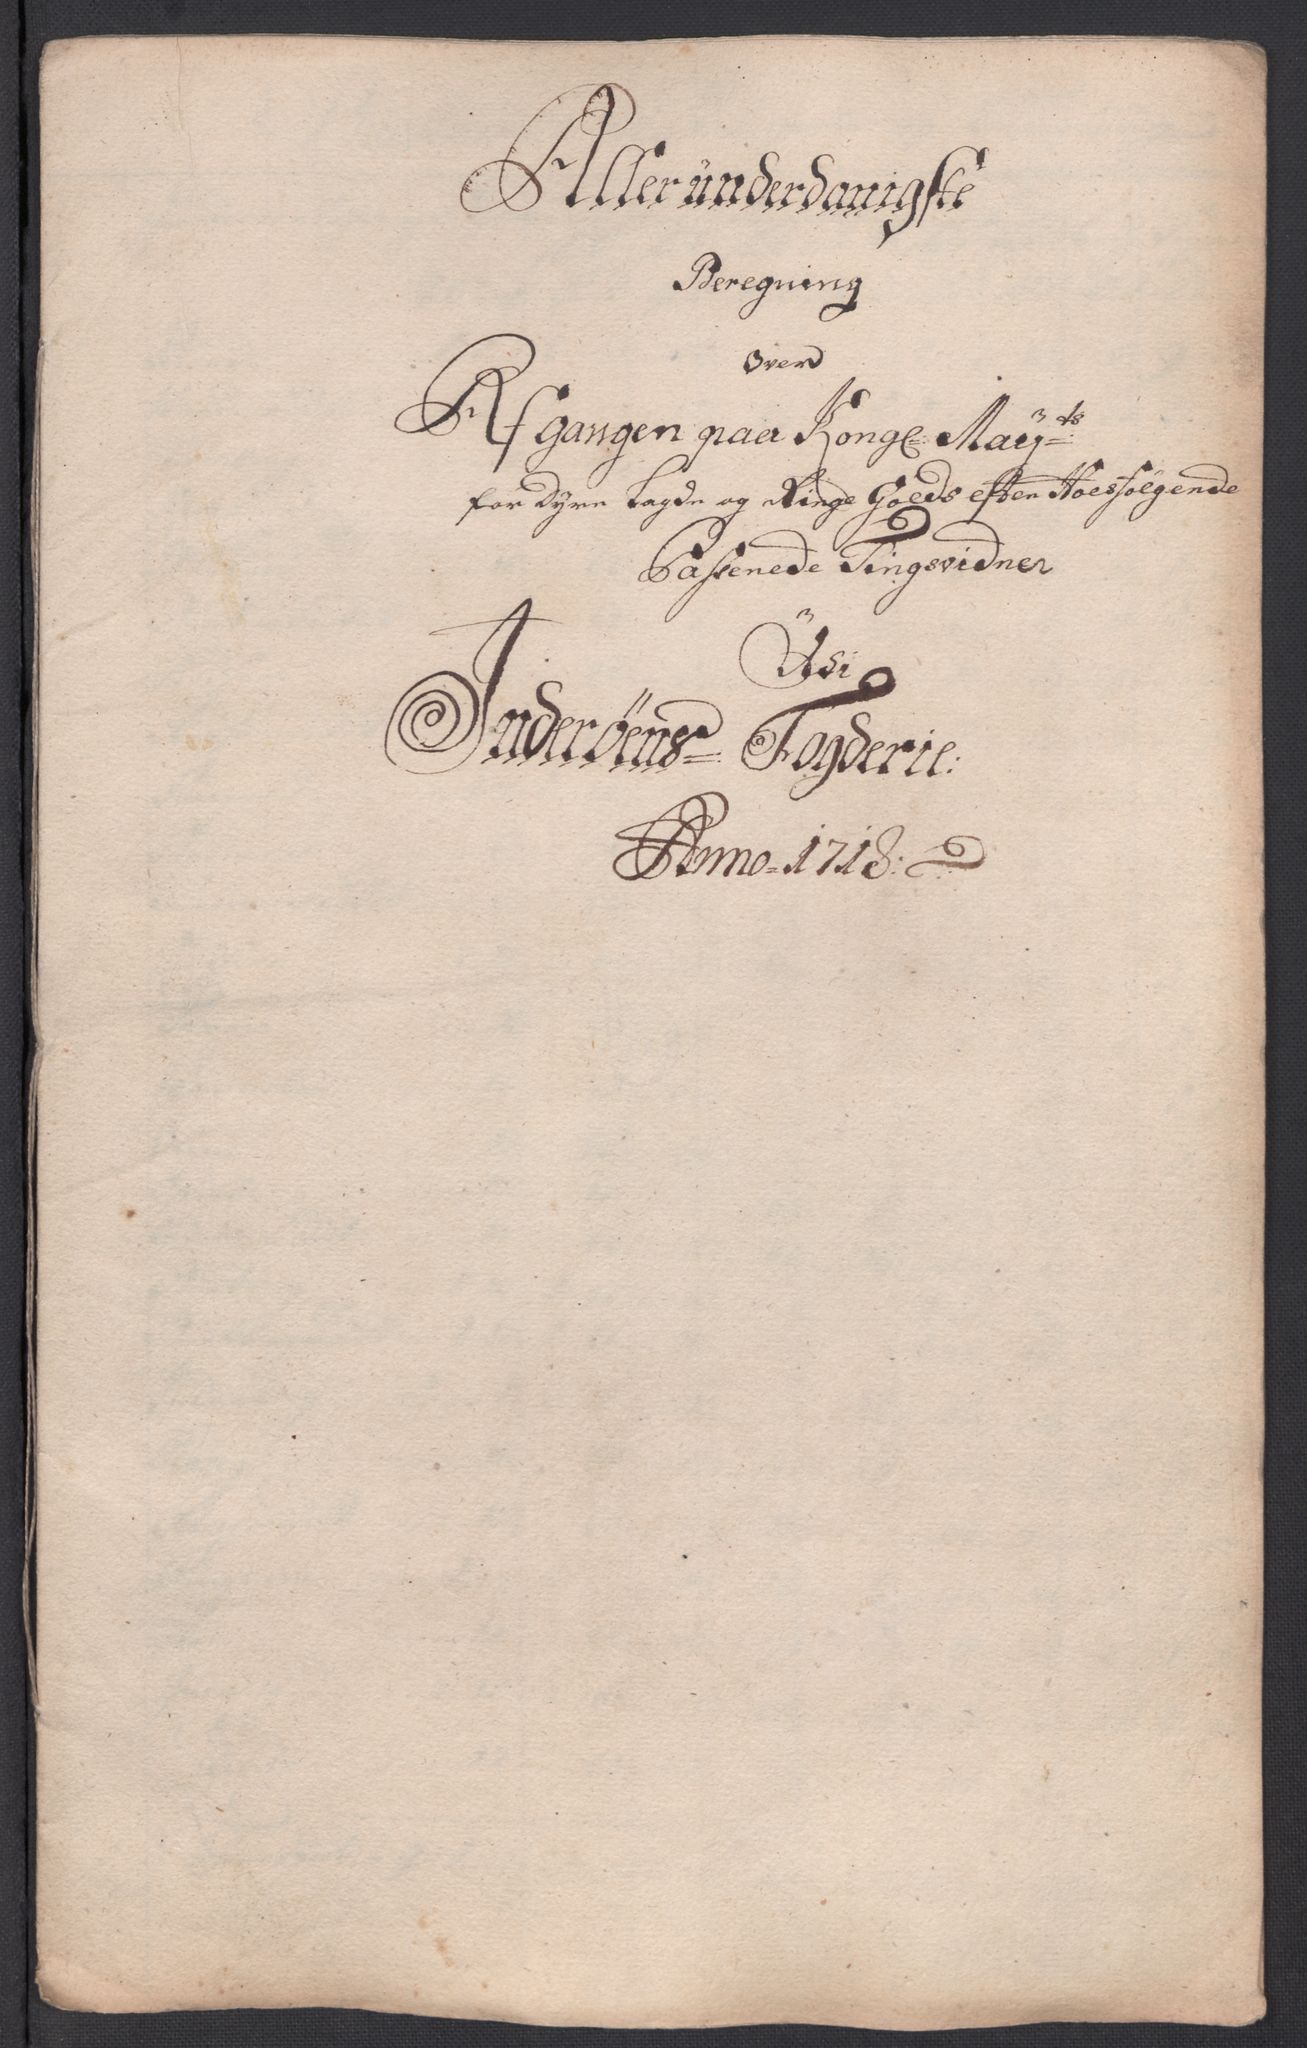 Alleründerdanigste
Beregning
over
Afgangen paa Kongl: Maÿ:ts
for dyre lagde og Ringe Goeds efter Hoesføÿgende
Passerede Tingsvidner
Üdi
Inderøens Fogderie:
Anno 1718: